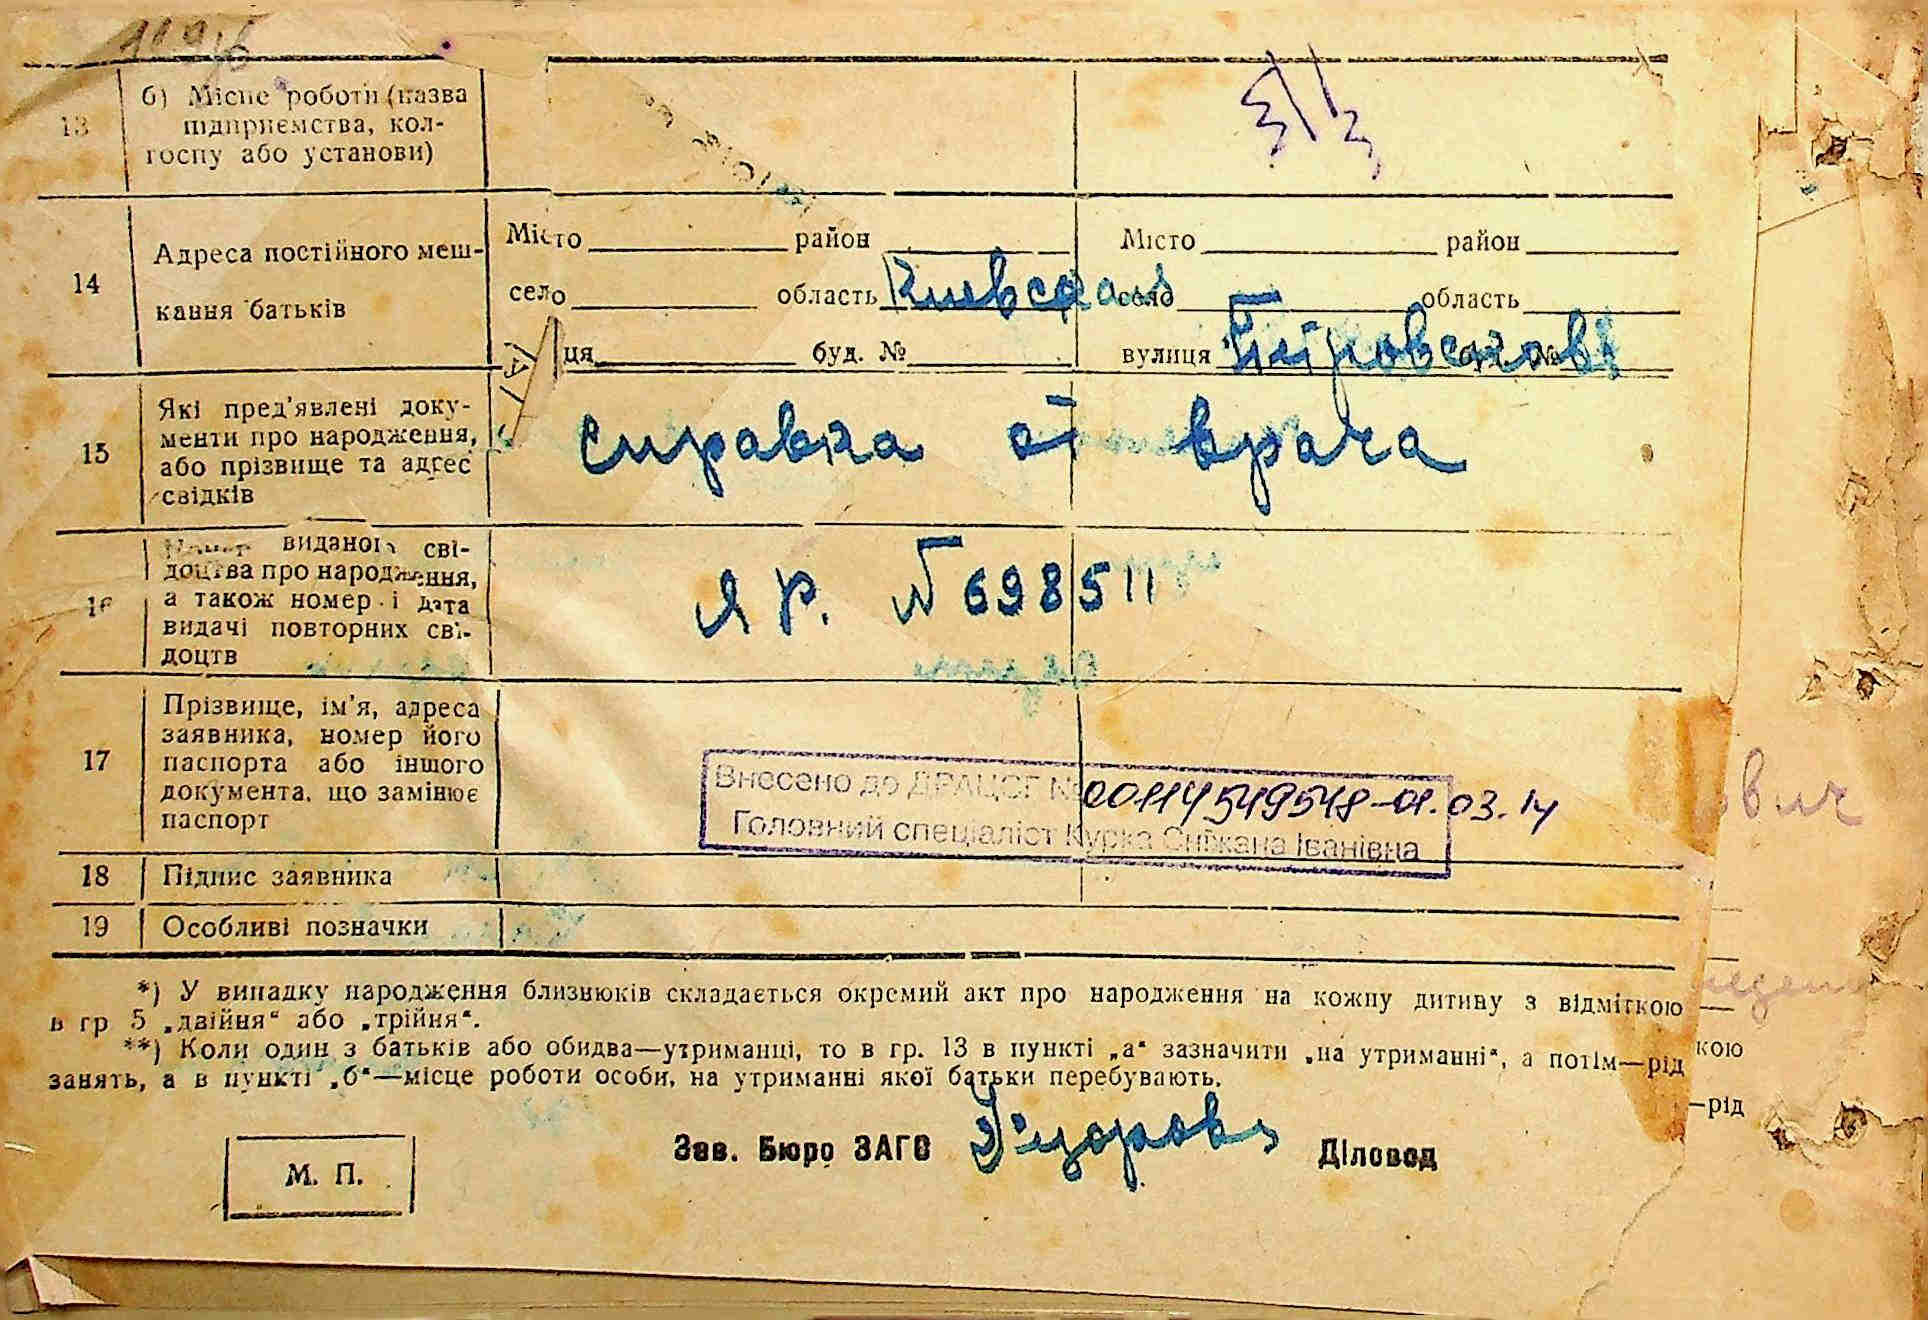 13
б) Місце роботи (назва
підприємства, кол-
госпу або установи)
з/з
14
Адреса постійного меш-
кання батьків
Місто район
село область Киевская
ця буд. №
Місто район
село область
вулиця
15
Які пред'явлені доку-
менти про народження,
або прізвище та адрес
свідків
справка от врача
16
Номер виданого сві-
доцтва про народження,
а також номер і дата
видачі повторних сві-
доцтв
Я Р. № 698511
17
Прізвище, ім'я, адреса
заявника, номер його
паспорта або іншого
документа, що замінює
паспорт
Внесено до ДРАЦСГ № 00114549548-01.03.14
Головний спеціаліст Курка Сніжана Іванівна
18
Підпис заявника
19
Особливі позначки
*) У випадку народження близнюків складається окремий акт про народження на кожну дитину з відміткою
в гр 5 „двійня“ або „трійня“.
**) Коли один з батьків або обидва—утриманці, то в гр. 13 в пункті „а“ зазначити „на утриманні“, а потім—рід
занять, а в пункті „б“—місце роботи особи, на утриманні якої батьки перебувають.
кою
—рід
ович
М. П.
Зав. Бюро ЗАГС
Діловод